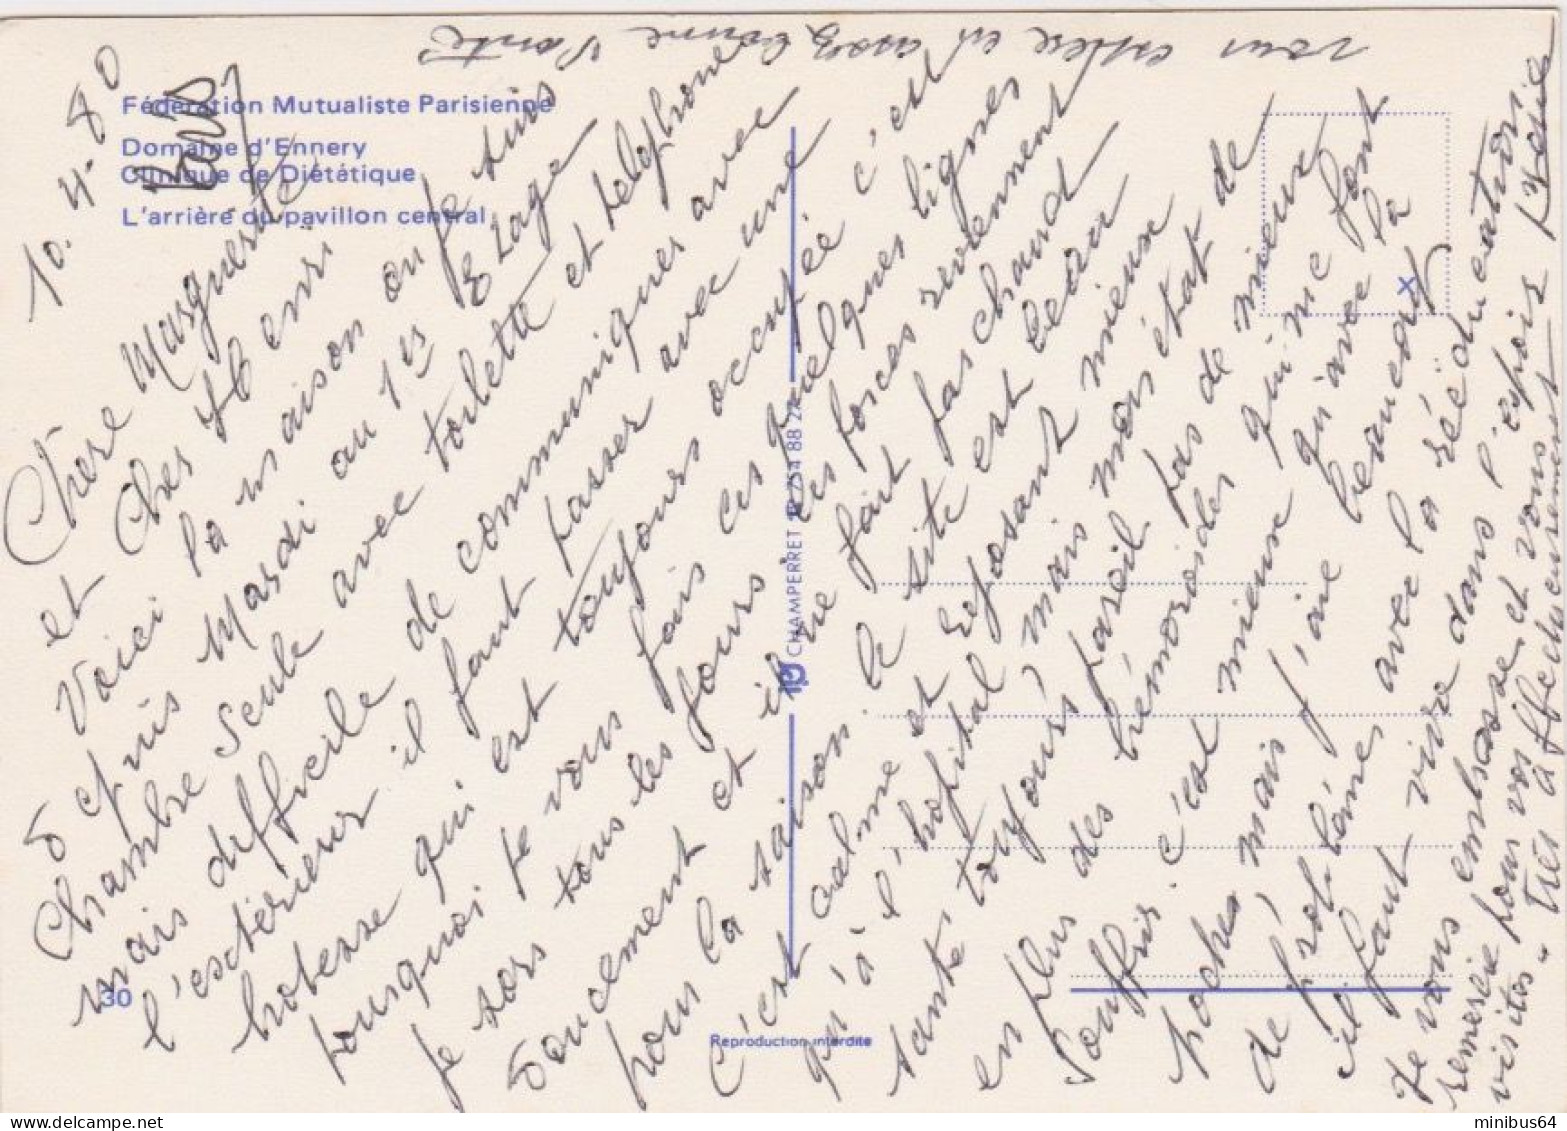 Fédération Mutualiste Parisienne
Domaine d'Ennery
Clinique de Diététique
L'arrière du pavillon central
10.4.80
Chère Marguerite
et Cher Henri
Voici la maison ou je suis
depuis Mardi au 1er Etage
Chambre seule avec toilette et telephone
mais difficile de communiquer avec
l'extérieur il faut passer avec une
hotesse qui est toujours occupée c'est
pourquoi je vous fais ces quelques lignes
je sors tous les jours les forces reviennent
doucement et il ne fait pas chaud
pour la saison. le site est beau
c'est calme et reposant mieux
qu'à l'hopital mais mon état de
santé toujours pareil pas de mieux
en plus des hémoroides qui me font
souffrir. c'est mieux qu'avec la
poches mais j'aie beaucoup
de problèmes avec la rééducation
il faut vivre dans l'espoir
Je vous embrasse et vous
remercie pour vos
visites. Très affectueusement
vous espère en assez bonne Santé
CHAMPERRET 754 88 24
30
Reproduction interdite
minibus64